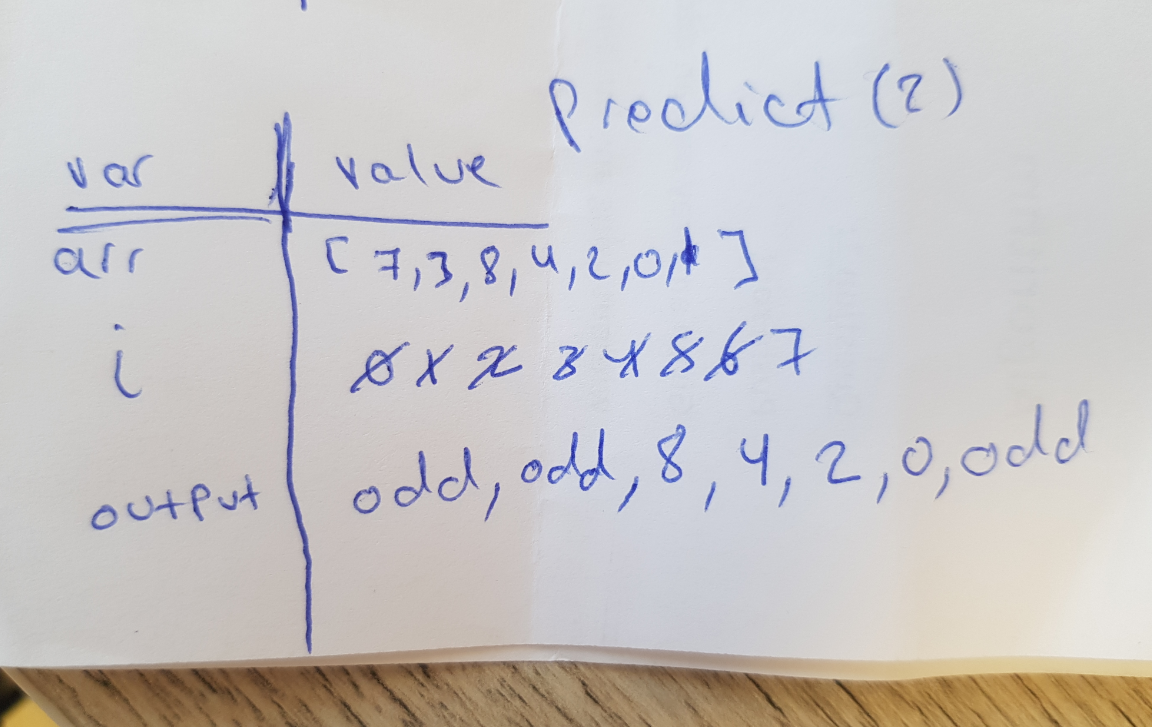 predict (2)
var value
arr [7,3,8,4,2,0,1]
i 0 1 2 3 4 5 6 7
output odd, odd, 8, 4, 2, 0, odd